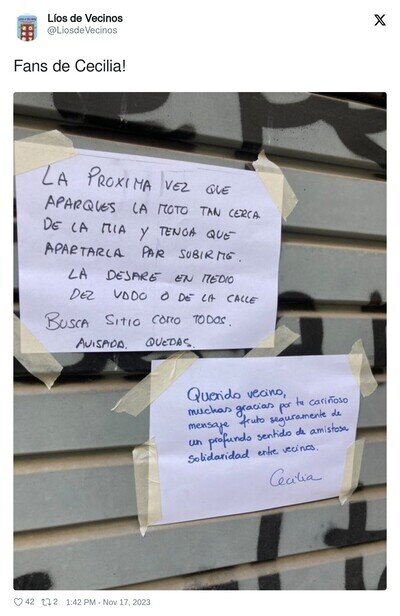 Líos de Vecinos
@LiosdeVecinos
Fans de Cecilia!
LA PROXIMA VEZ QUE
APARQUES LA MOTO TAN CERCA
DE LA MIA Y TENGA QUE
APARTARLA PAR SUBIRME.
LA DEJARE EN MEDIO
DEZ VADO O DE LA CALLE
BUSCA SITIO COMO TODOS.
AVISADA. QUEDAS.
Querido vecino,
muchas gracias por te cariñoso
mensaje fruto seguramente de
un profundo sentido de amistosa
solidaridad entre vecinos.
Cecilia
42 2 1:42 PM - Nov 17, 2023